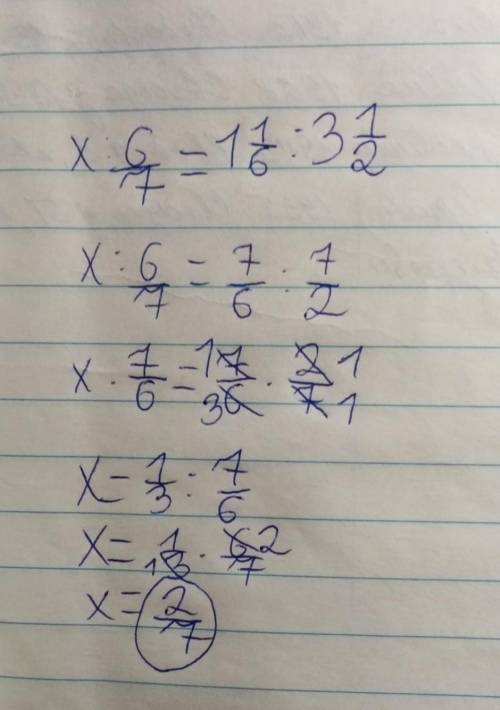 x : 6/7 = 1 1/6 : 3 1/2
x : 6/7 = 7/6 : 7/2
x · 7/6 = 1 7/3 6 · 2/7 1 1
x = 1/3 : 7/6
x = 1/1 3 · 6 2/7
x = 2/7